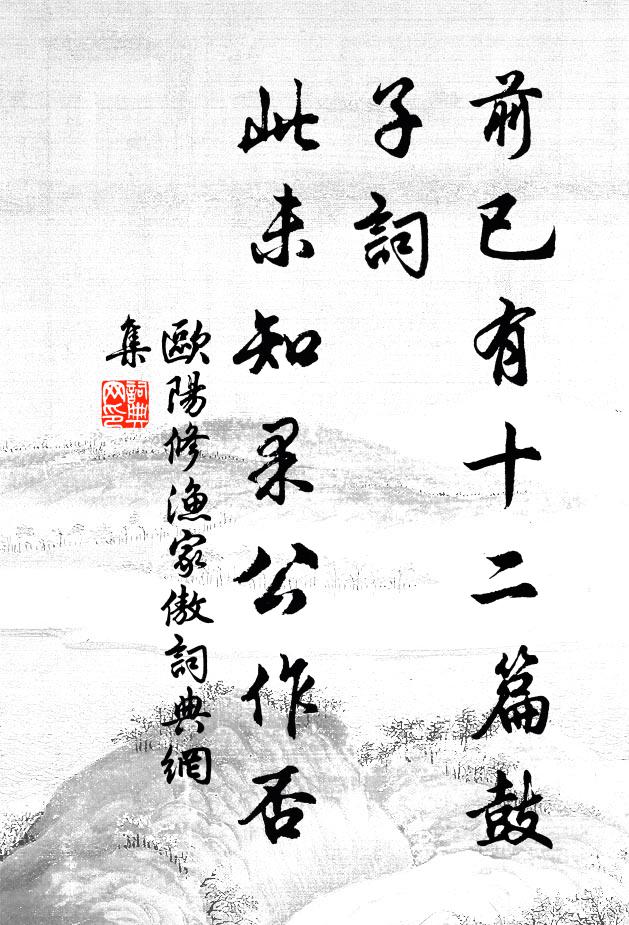 前已有十二篇鼓
子詞
此未知果公作否
歐陽修漁家傲詞典網
集
詞典
网印